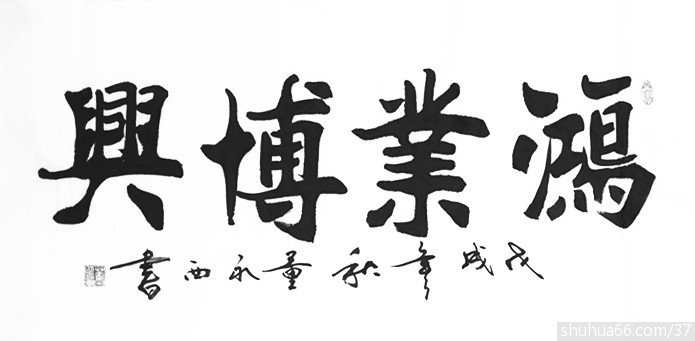 鴻業博興
戊戌年秋董永西書
shuhua66.com/37